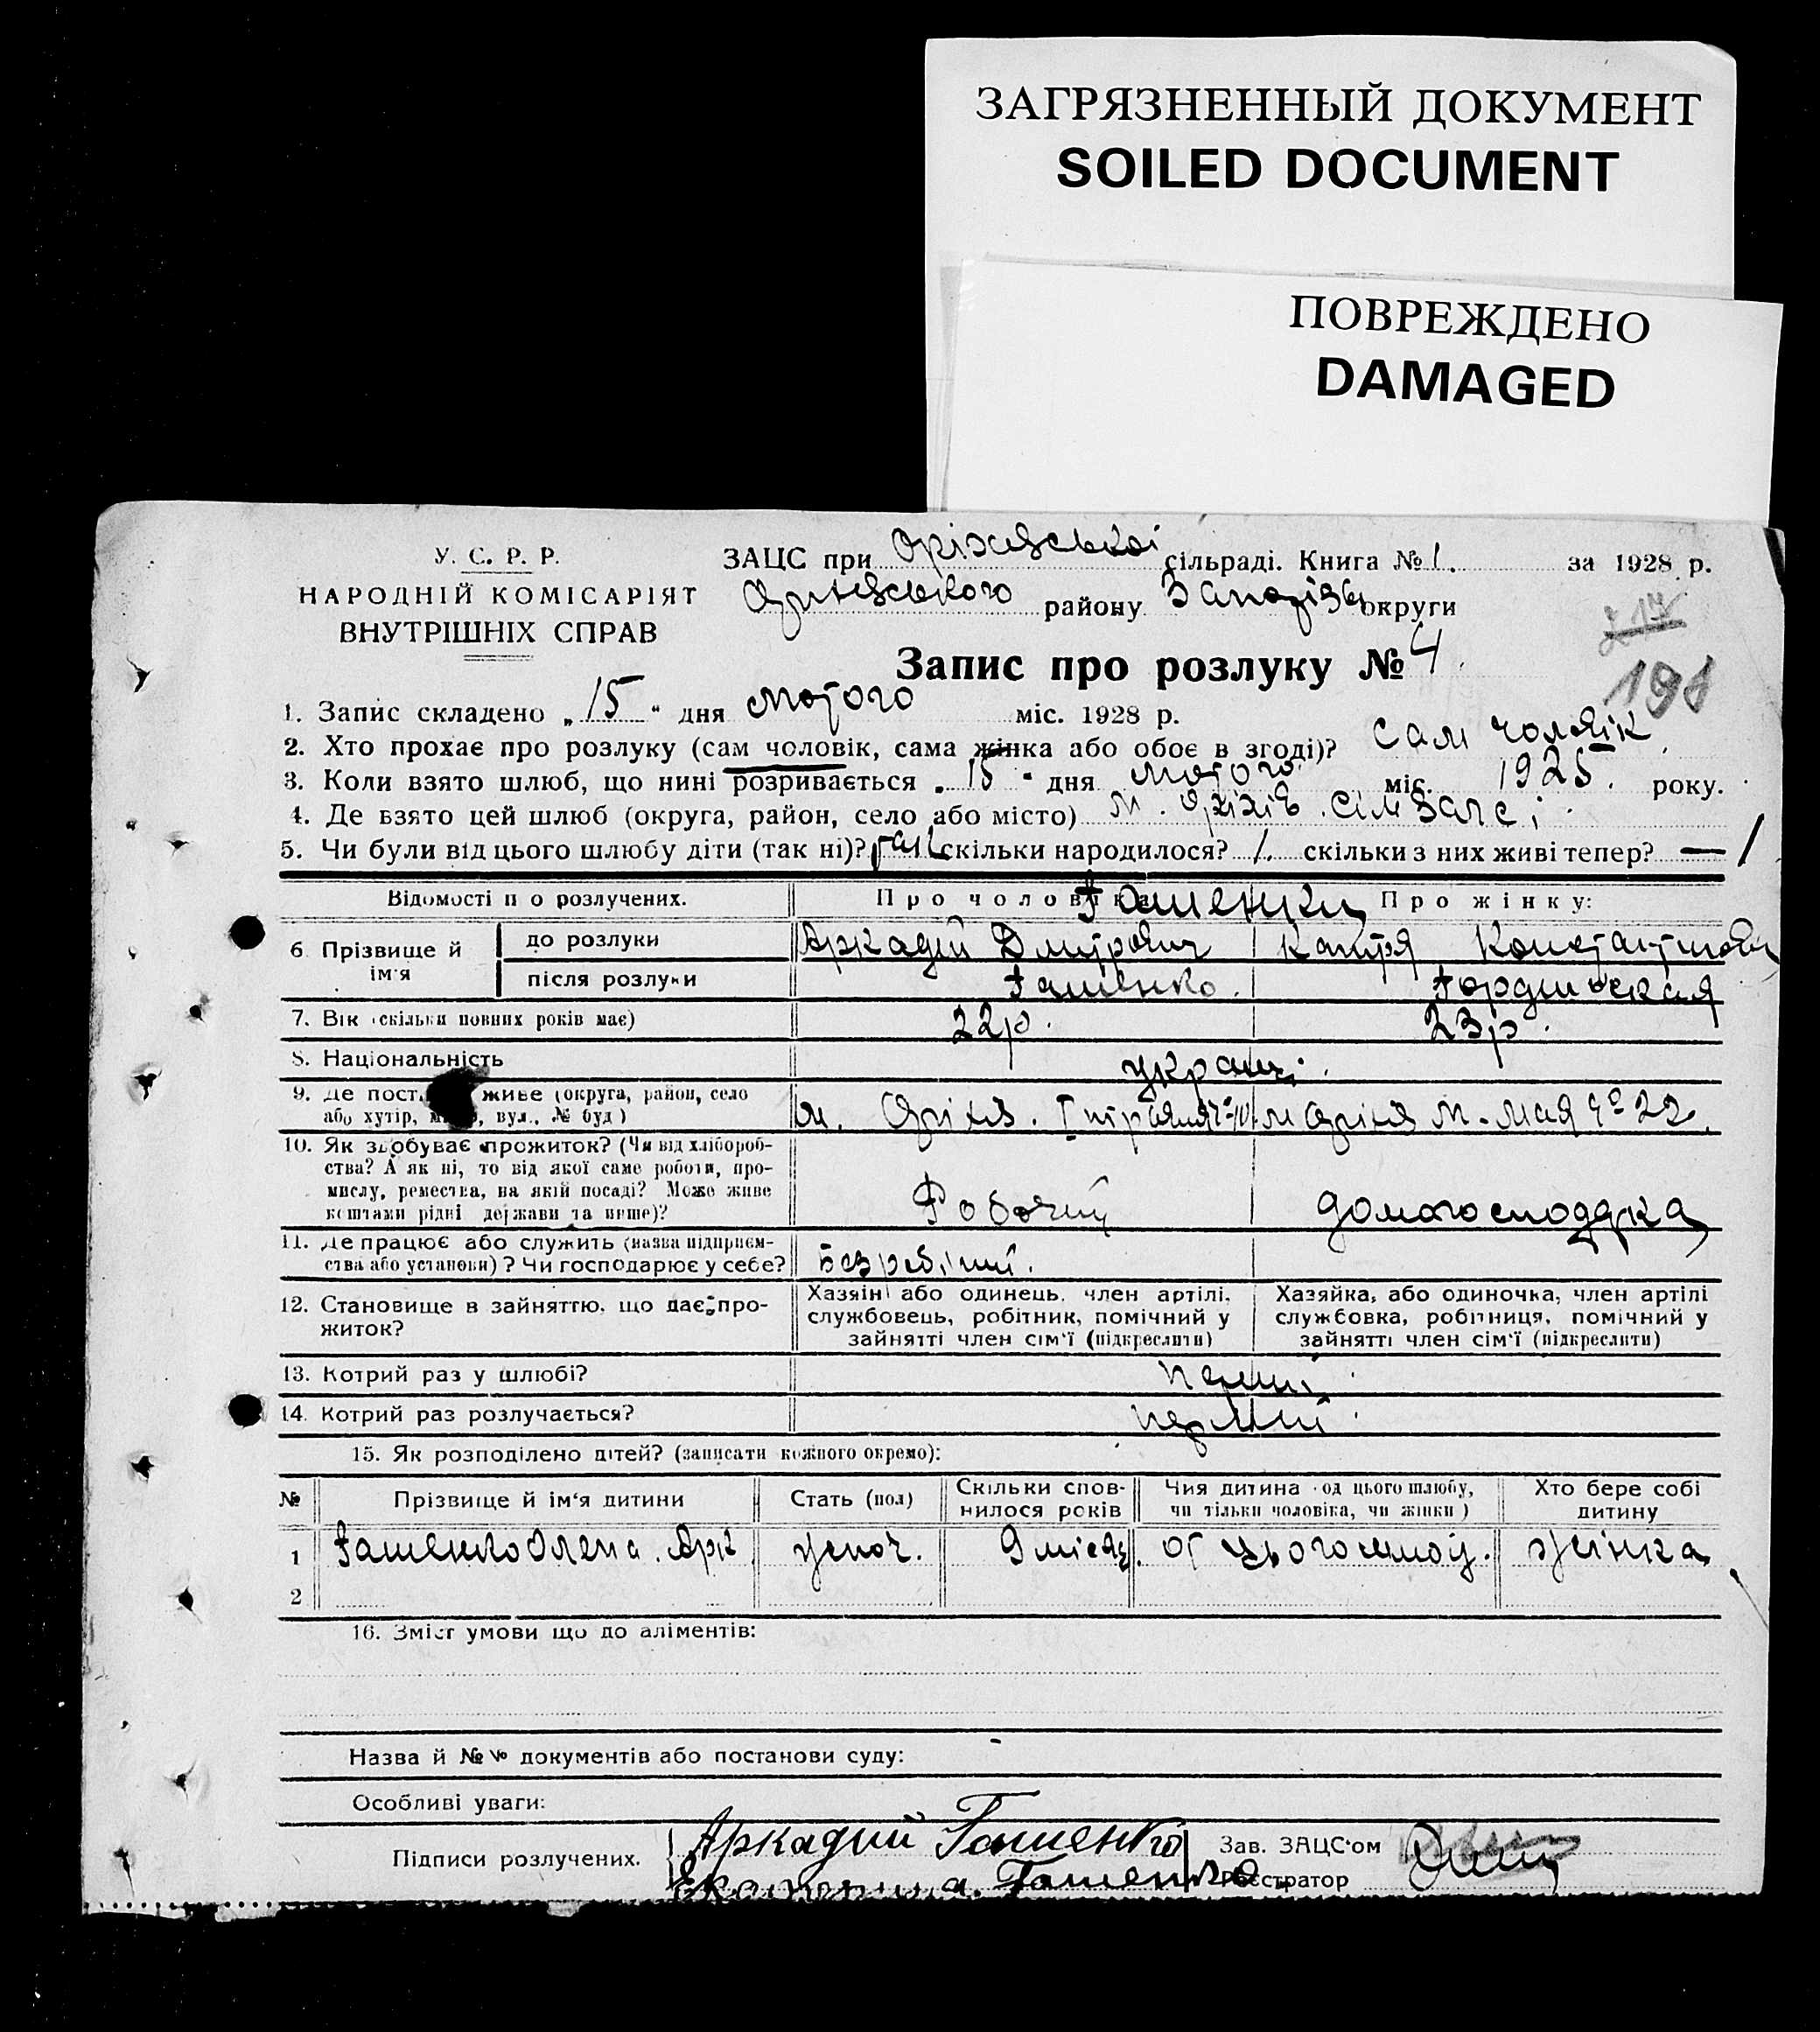 ЗАГРЯЗНЕННЫЙ ДОКУМЕНТ
SOILED DOCUMENT
ПОВРЕЖДЕНО
DAMAGED
У. С. Р. Р.
НАРОДНІЙ КОМІСАРІЯТ
ВНУТРІШНІХ СПРАВ
ЗАЦС при Оріхівської сільраді. Книга № 1. за 1928 р.
Оріхівського району Запоріз округи
217
198
Запис про розлуку № 4.
1. Запис складено „ 15 " дня лютого міс. 1928 р.
2. Хто прохає про розлуку (сам чоловік, сама жінка або обоє в згоді)? Сам чоловік
3. Коли взято шлюб, що нині розривається „ 15 " дня лютого міс. 1925. року.
4. Де взято цей шлюб (округа, район, село або місто) м. Оріхів.
5. Чи були від цього шлюбу діти (так ні)? так скільки народилося? 1. скільки з них живі тепер? — 1
Відомості про розлучених. Про чоловіка: Про жінку:
Гашенки
6. Прізвище й ім'я до розлуки Аркадій Дмитрович Катря Константинов
після розлуки Гашенко. Гординская
7. Вік (скільки повних років має) 22 р. 23 р.
8. Національність україн.
9. Де пост живе (округа, район, село
або хутір, вул., № буд) м. Оріхів. м Оріхів 1-Мая № 22.
10. Як здобуває прожиток? (Чи від хлібороб-
ства? А як ні, то від якої саме роботи, про-
мислу, ремества, на якій посаді? Може живе
коштами рідні держави та инше)? Робочий домогосподарка
11. Де працює або служить (назва підприєм-
ства або установи)? Чи господарює у себе? Безробітний.
12. Становище в зайняттю, що дає про-
житок?
Хазяїн або одинець, член артілі,
службовець, робітник, помічний у
зайнятті член сім'ї (підкреслити)
Хазяйка, або одиночка, член артілі
службовка, робітниця, помічний у
зайнятті член сім'ї (підкреслити)
13. Котрий раз у шлюбі? перший
14. Котрий раз розлучається? перший
15. Як розподілено дітей? (записати кожного окремо):
№ Прізвище й ім'я дитини Стать (пол) Скільки спов-
нилося років Чия дитина (од цього шлюбу,
чи тільки чоловіка, чи жінки) Хто бере собі
дитину
1 Гашенко Олена. Арк жіноч. 9 місяц. от цього шлюбу. жінка
2
16. Зміст умови що до аліментів:
Назва й №№ документів або постанови суду:
Особливі уваги:
Підписи розлучених. Аркадий Гашенко
Екатерина. Гашенко
Зав. ЗАЦС'ом
Реєстратор